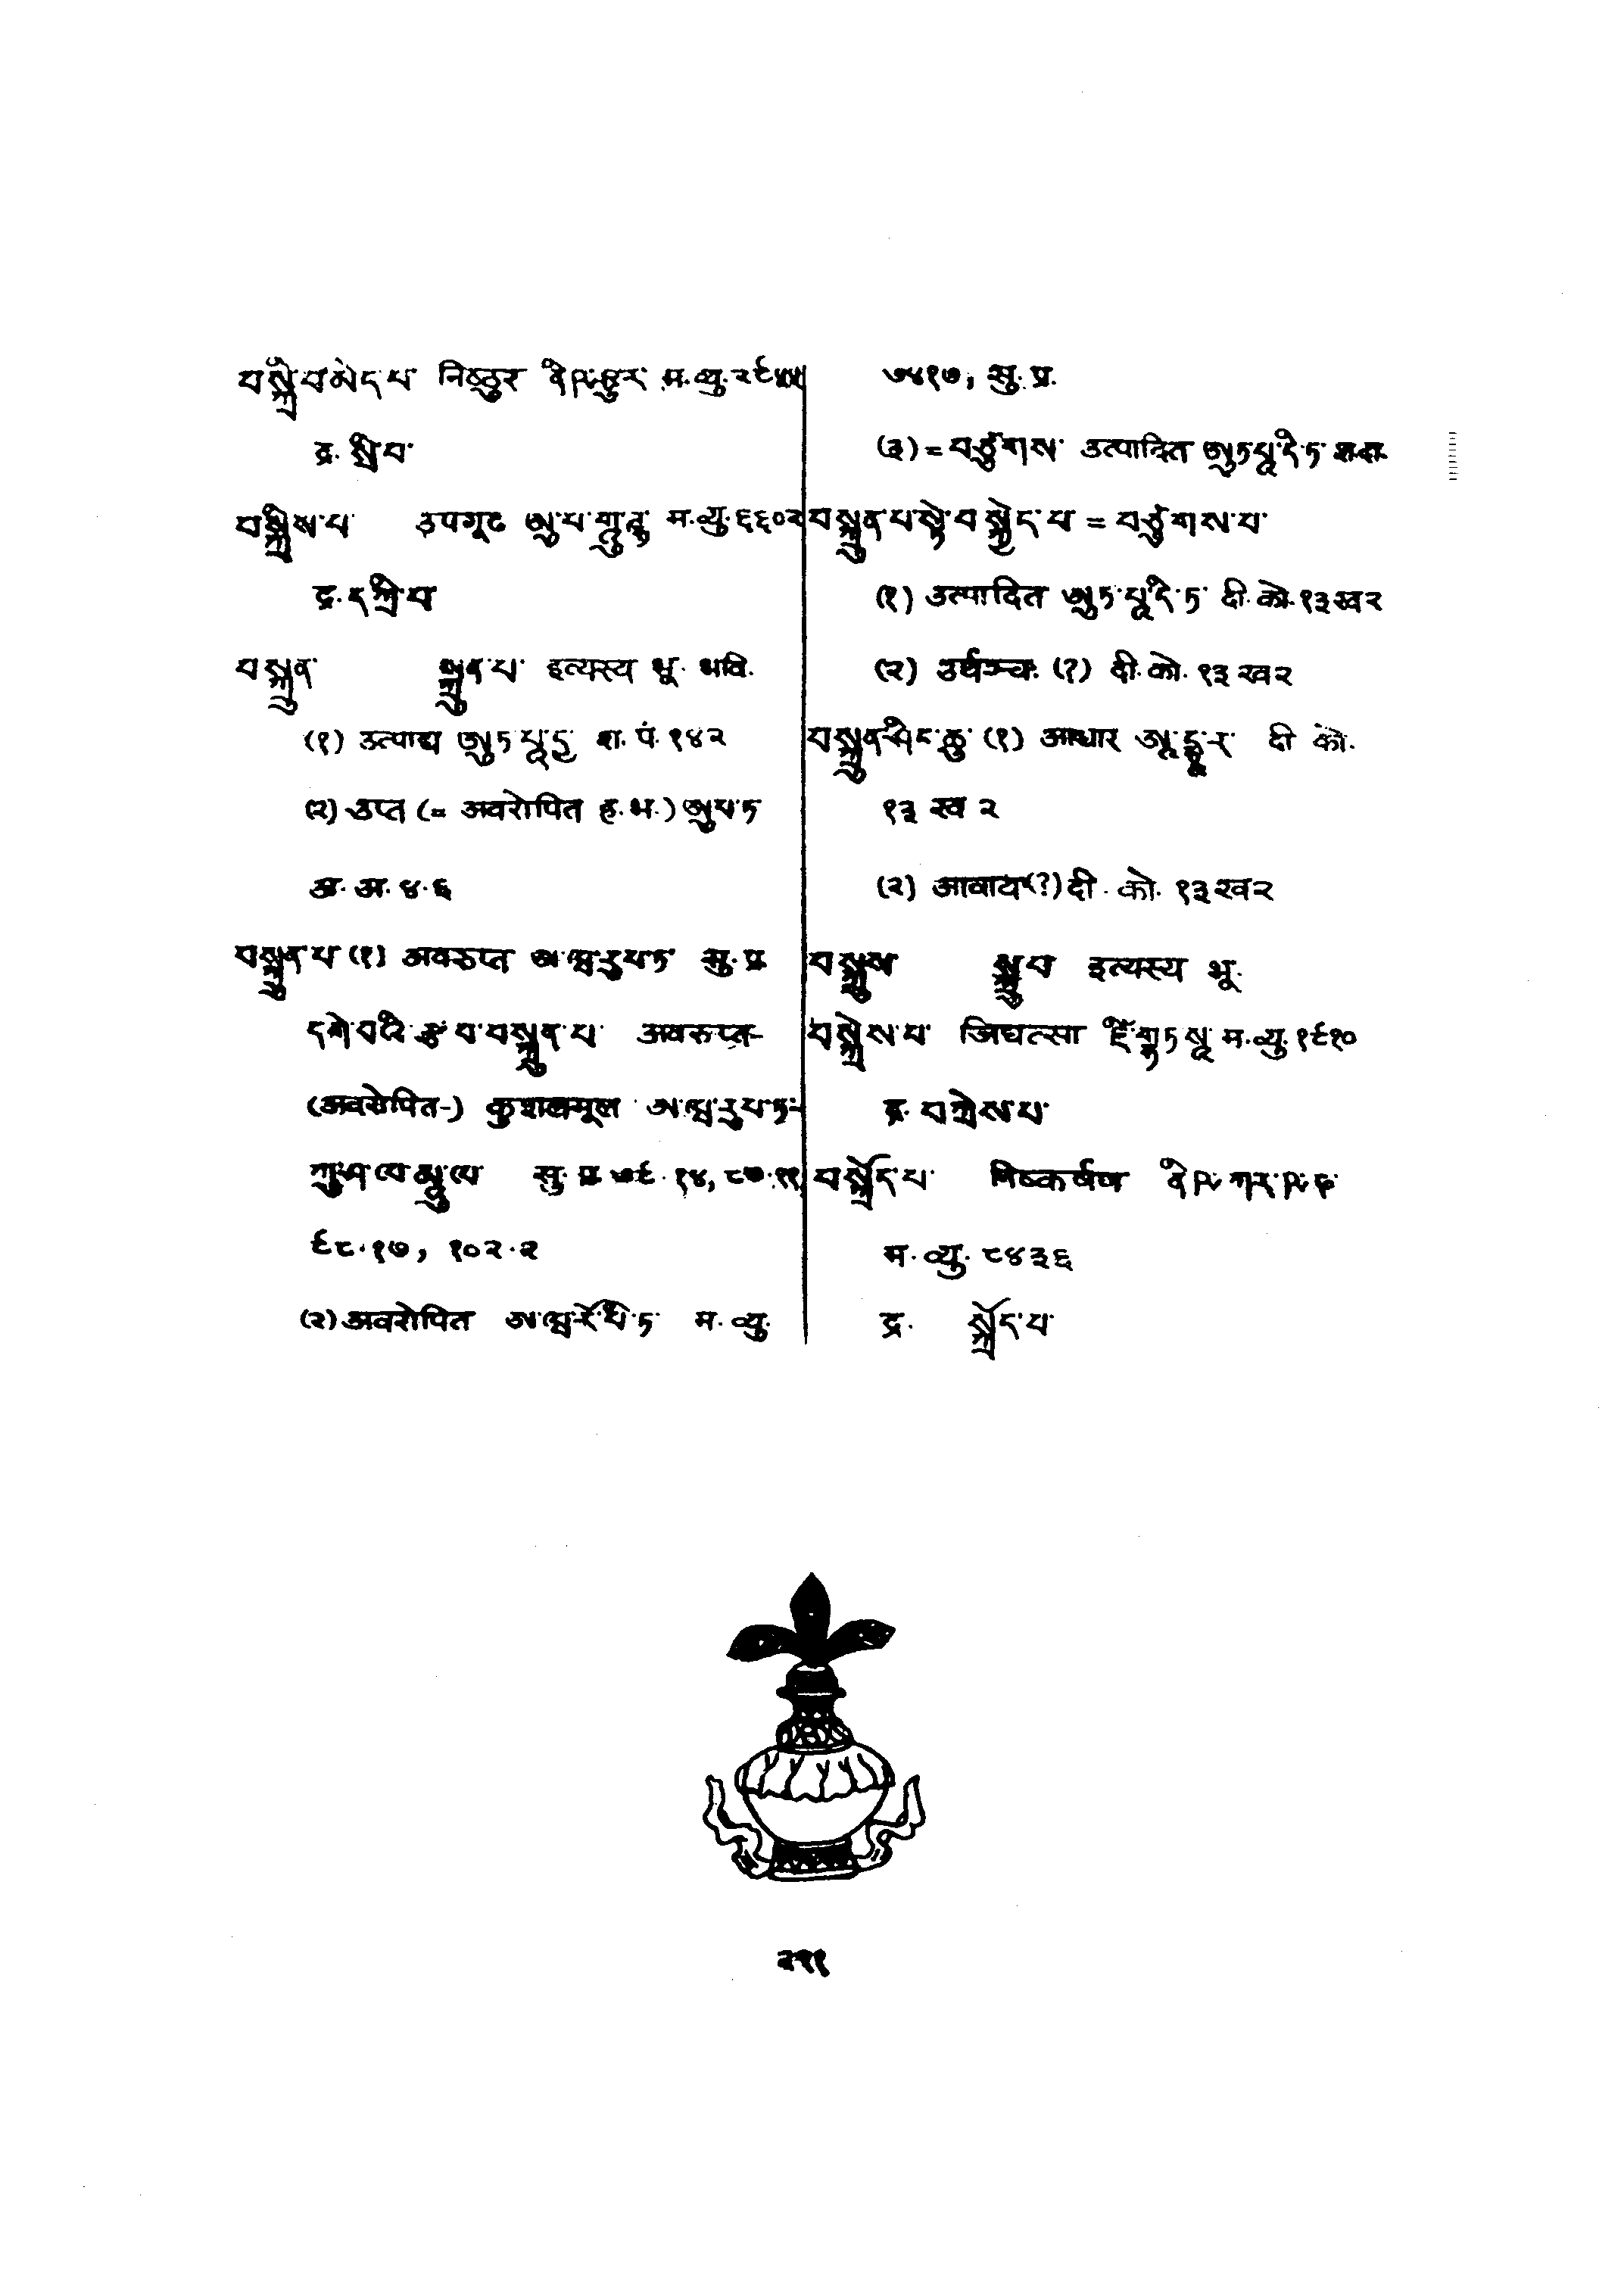 བསྐྲིབ་མེད་པ་ निष्ठुर ནིཥྛུར་ म. व्यु. २९५५
द्र. སྒྲིབ་
བསྐྲིས་པ་ उपगूढ ཨུ་པ་གཱུ་ཌྷ म. व्यु. ६६०२
द्र. དཀྲི་བ་
བསྐྲུན་ སྐྲུན་པ་ इत्यस्य भू. भवि.
(१) उत्पाद्य ཨུཏ་པཱ་དྱ श. पं. १४२
(२) उप्त (= अवरोपित ह. भ.) ཨུཔ་ཏ
अ. अ. ४.६
བསྐྲུན་པ་ (१) अवरुप्त ཨ་ཝ་རུཔ་ཏ་ सु. प्र.
དགེ་བའི་རྩ་བ་བསྐྲུན་པ་ अवरुप्त-
(अवरोपित-) कुशलमूल ཨ་ཝ་རུཔ་ཏ་-
ཀུ་ཤ་ལ་མཱུ་ལ་ सु. प्र. ७९.१४, ८७.११,
९८.१७, १०२.२
(२) अवरोपित ཨ་ཝ་རོ་པི་ཏ म. व्यु.
७४१७, सु. प्र.
(३) = བཙུགས་ उत्पादित ཨུཏ་པཱ་དི་ཏ
བསྐྲུན་པ་སྟེ་བསྐྱེད་པ = བཙུགས་པ་
(१) उत्पादित ཨུཏ་པཱ་དི་ཏ་ दी. को. १३ ख २
(२) (?) दी. को. १३ ख २
བསྐྲུན་ཤིང་རྒྱུ (१) आधार ཨཱ་དྷཱ་ར་ दी को.
१३ ख २
(२) (?) दी. को. १३ ख २
བསྐྲུས སྐྲུབ་ इत्यस्य भू.
བསྐྲེས་པ་ जिघत्सा ཛི་གྷཏ་སཱ म. व्यु. १९१०
द्र. བཀྲེས་པ་
བསྐྲོད་པ་ निष्कर्षण ནིཥ་ཀར་ཥ་ཎ
म. व्यु. ८४३६
द्र. སྐྲོད་པ་
२११